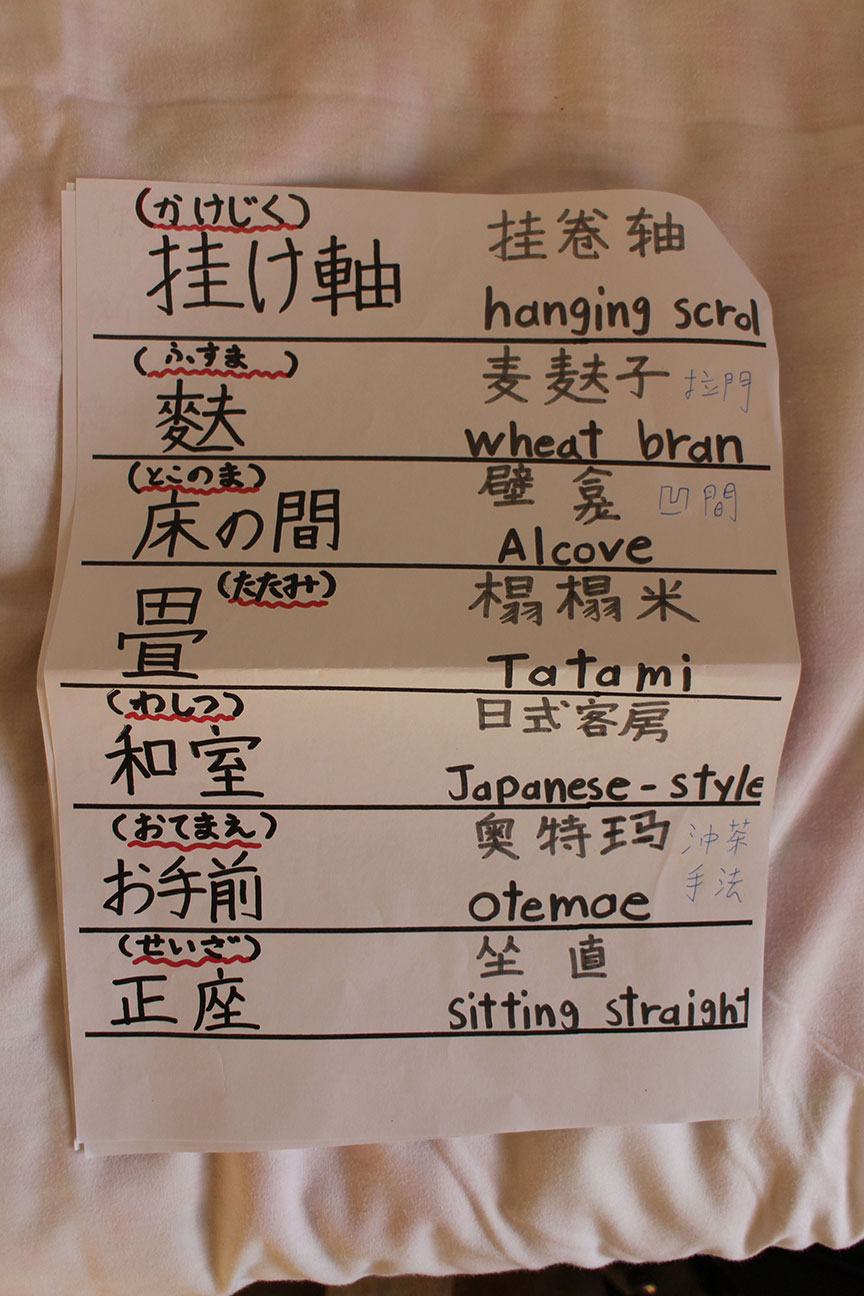 (かけじく)
挂け軸
挂卷轴
hanging scrol
(ふすま)
麩
麦麸子 拉門
wheat bran
(とこのま)
床の間
壁龛 凹間
Alcove
(たたみ)
畳
榻榻米
Tatami
(わしつ)
和室
日式客房
Japanese-style
(おてまえ)
お手前
奥特玛 沖茶
手法
otemae
(せいざ)
正座
坐直
sitting straight